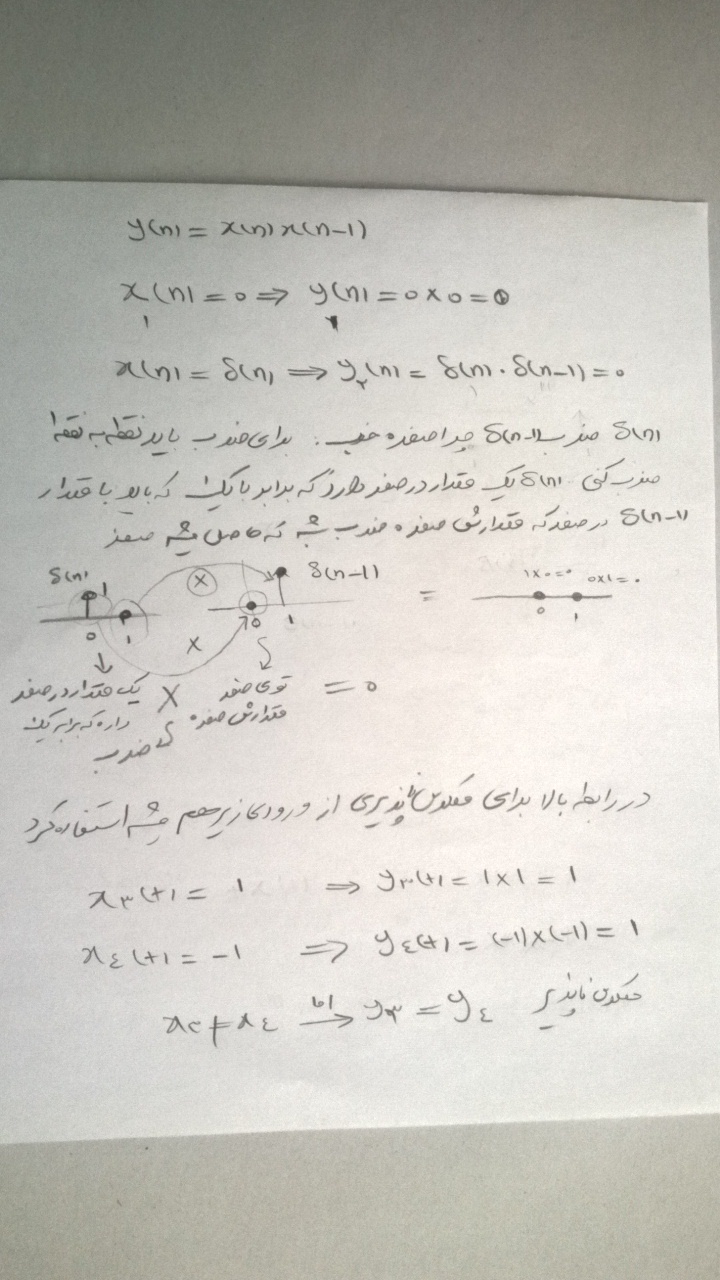 y(n) = x(n) x(n-1)
x₁(n) = 0 ⇒ y₁(n) = 0 × 0 = 0
x(n) = δ(n) ⇒ y₂(n) = δ(n) · δ(n-1) = 0
δ(n) ضرب در δ(n-1) چرا صفره خب: برای ضرب باید نقطه به نقطه
ضرب کنی. δ(n) یک مقدار در صفر دارد که برابر با یک که باید با مقدار
δ(n-1) در صفر که مقدارش صفره ضرب بشه که حاصل میشه صفر
δ(n) 1 × δ(n-1) = 1×0=0 0×1=0
0 1 × 0 1 0 1
یک مقدار در صفر × توی صفر = 0
داره که برابر یک مقدارش صفره
ضرب
در رابطه بالا برای معکوس ناپذیری از ورودی زیر هم میشه استفاده کرد
x₃(t) = 1 ⇒ y₃(t) = 1 × 1 = 1
x٤(t) = -1 ⇒ y٤(t) = (-1) × (-1) = 1
x₃ ≠ x٤ اما → y₃ = y٤ معکوس ناپذیر